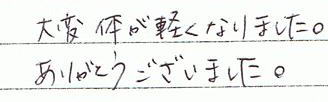 大変体が軽くなりました。
ありがとうございました。